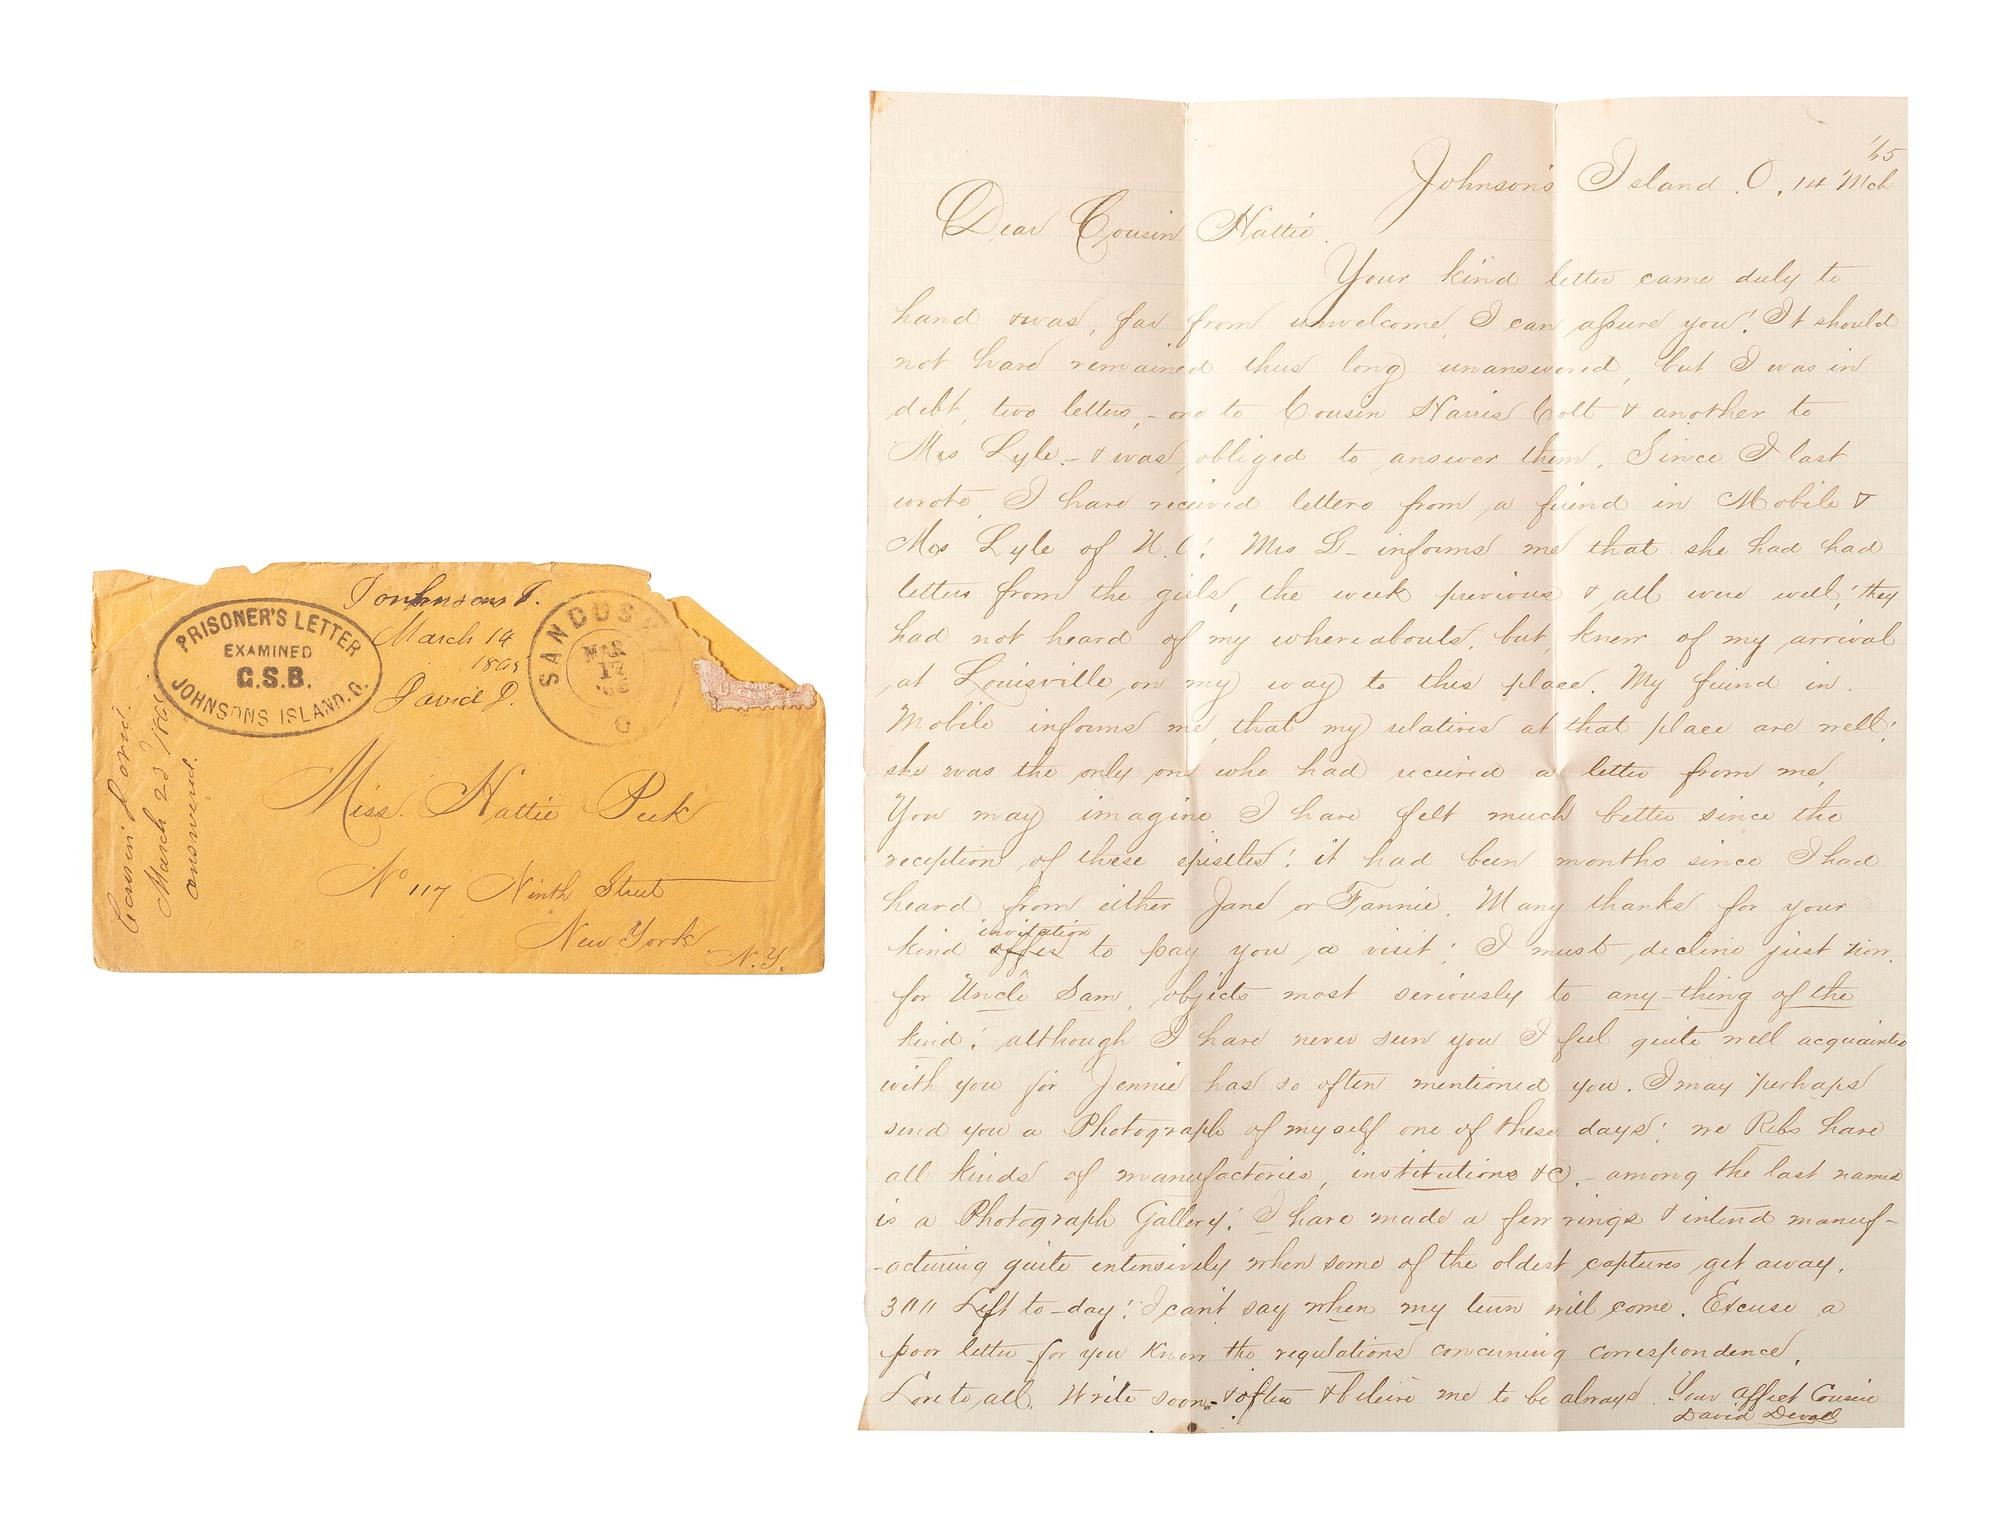 PRISONER'S LETTER
EXAMINED
C.S.B.
JOHNSONS ISLAND. O.
Johnsons I.
March 14
1865
David D.
SANDUSKY
MAR
17
O
Cousin David.
March 23 1865
answered.
Miss. Hattie Peck
No 117 Ninth Street
New York
N.Y.
'65
Johnson's Island. O. 14 Mch
Dear Cousin Hattie.
Your kind letter came duly to
hand & was, far from unwelcome, I can assure you! It should
not have remained thus long unanswered, but I was in
debt, two letters,- one to Cousin Harris Colt & another to
Mrs Lyle.- & was obliged to answer them. Since I last
wrote, I have received letters from a friend in Mobile &
Mrs Lyle of N.C! Mrs L- informs me that she had had
letters from the girls, the week previous & all were well; they
had not heard of my whereabouts, but, knew of my arrival
at Louisville, on my way to this place. My friend in
Mobile informs me, that my relatives at that place are well;
she was the only one who had received a letter from me,
You may imagine I have felt much better since the
reception of these epistles! it had been months since I had
heard from either Jane or Fannie. Many thanks for your
kind invitation to pay you a visit! I must decline just now.
for Uncle Sam, objects most seriously to any-thing of the
kind! although I have never seen you I feel quite well acquainted
with you for Jennie has so often mentioned you. I may perhaps
send you a Photograph of myself one of these days! we Rebs have
all kinds of manufactories, institutions &C.- among the last named
is a Photograph Gallery! I have made a few rings & intend manuf-
-acturing quite extensively when some of the oldest captures get away.
300 Left to-day! I can't say when my turn will come. Excuse a
poor letter for you know the regulations concerning correspondence.
Love to all. Write soon- & often & believe me to be always Your affect Cousin
David Devall